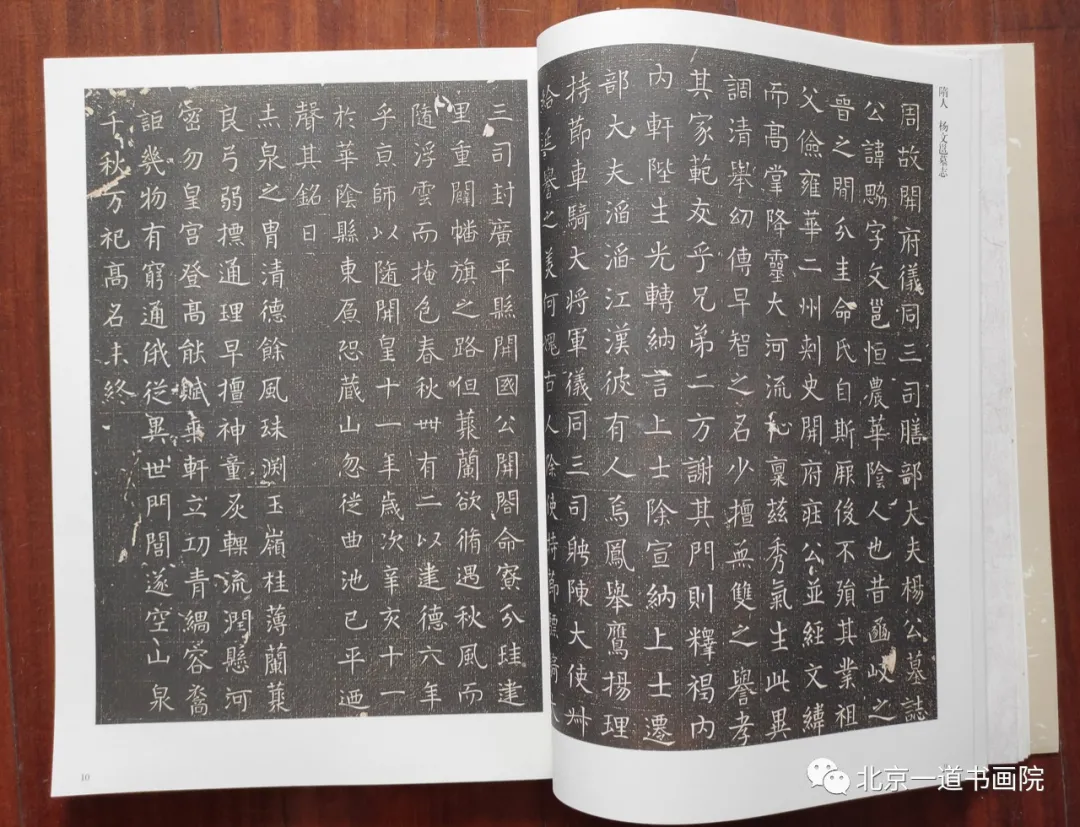 隋人 杨文邕墓志
周故開府儀同三司膳部大夫楊公墓誌
公諱 字文邕恒農華陰人也昔 岐之
晉之間分圭命氏自斯厥後不殞其業祖
父儉雍華二州刾史開府 公並經文緯
而髙掌降靈大河流 稟兹秀氣生此異
調清舉纫傳早智之名少擅無雙之譽孝
其家範友乎兄弟二方謝其門則釋褐内
内軒陛生光轉納言上士除宣納上士遷
部大夫滔滔江漢彼有人焉鳳舉鷹揚理
持莭車騎大将軍儀同三司聘陳大使
譽之美何 古人除使持莭
三司封廣平縣開國公開閤命寮分珪建
里重闢幡旗之路但藂蘭欲脩遇秋風而
隨浮雲而掩色春秋丗有二以建德六年
乎京師以隨開皇十一年歲次辛亥十一
於華陰縣東原恐蔵山忽徙曲池已平廼
聲其銘曰
赤泉之胄清德餘風珠渕玉嶺桂薄蘭藂
良弓弱摽通理早擅神童炙輠流潤懸河
密勿皇宫登髙能賦乗軒立功青緺容裔
詎幾物有窮通俄從異世門閭遂空山泉
千秋万祀髙名未終
10
北京一道书画院